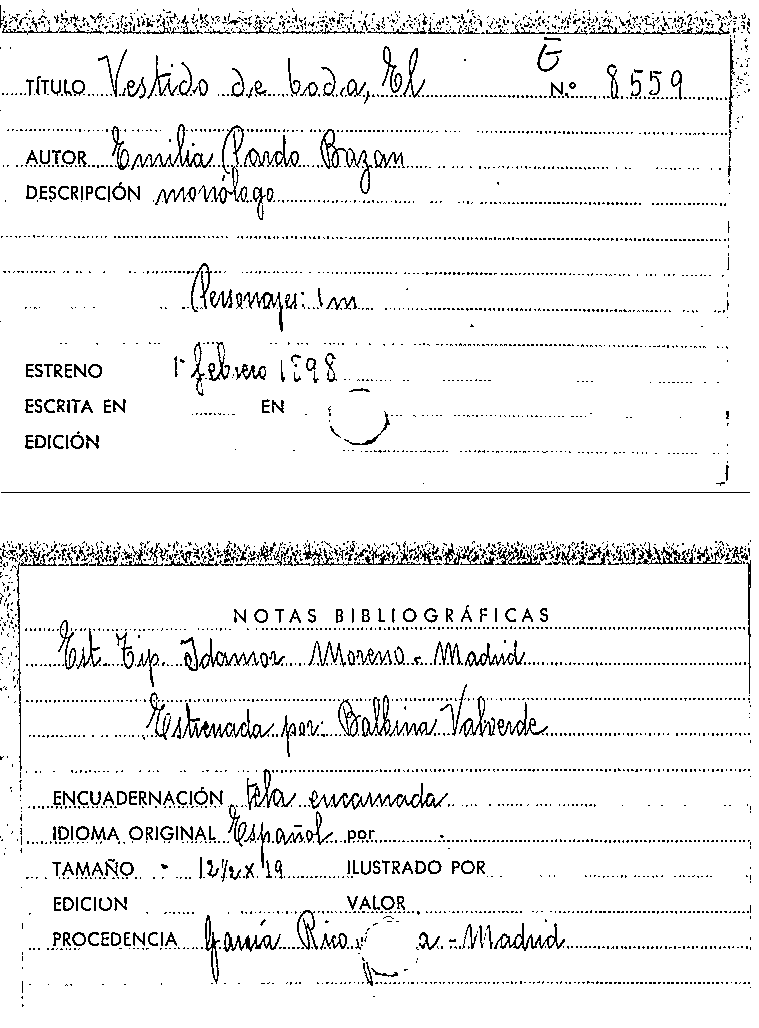 E
TÍTULO Vestido de boda, El N.º 8559
AUTOR Emilia Pardo Bazan
DESCRIPCIÓN monólogo
Personajes: 1 m
ESTRENO 1º febrero 1898
ESCRITA EN EN
EDICIÓN
NOTAS BIBLIOGRÁFICAS
Est. Tip. Idamor Moreno - Madrid
Estrenada por: Balbina Valverde
ENCUADERNACIÓN tela encarnada
IDIOMA ORIGINAL Español por
TAMAÑO - 12 1/2 x 19 ILUSTRADO POR
EDICION VALOR
PROCEDENCIA García Rico a - Madrid